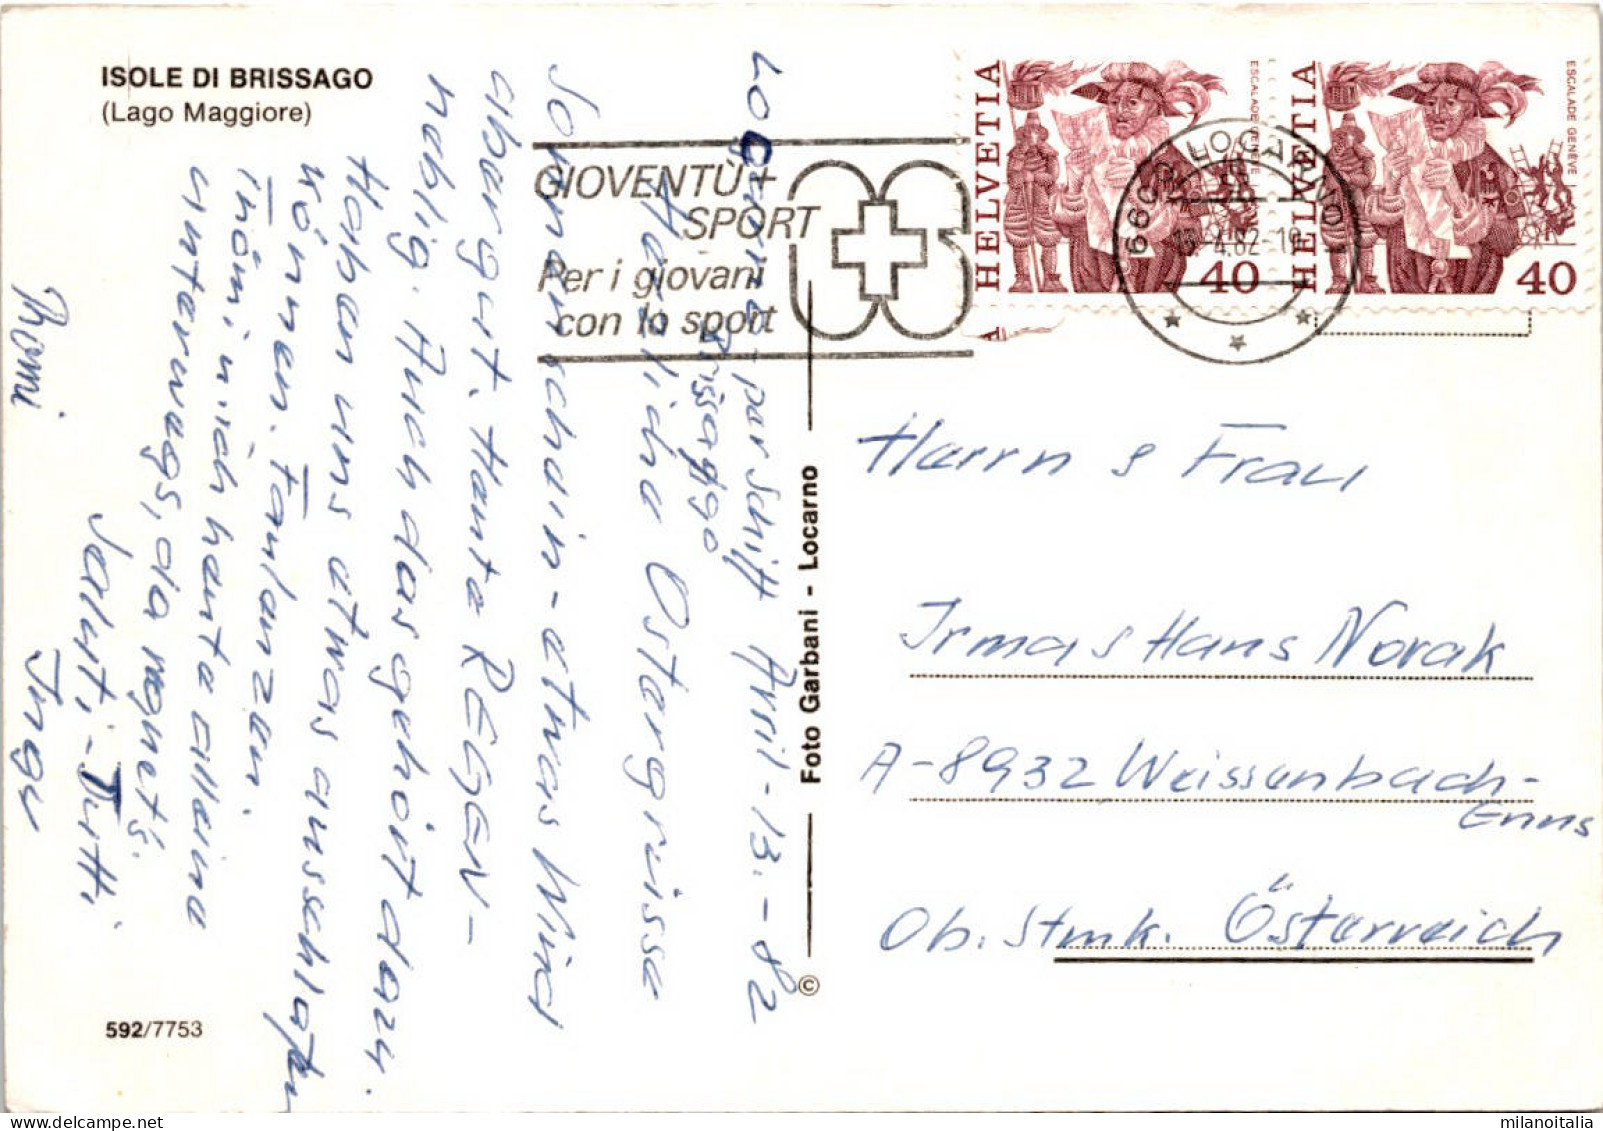 ISOLE DI BRISSAGO
(Lago Maggiore)
GIOVENTÙ +
SPORT
Per i giovani
con lo sport
HELVETIA
ESCALADE GENÈVE
40
HELVETIA
ESCALADE GENÈVE
40
6600 LOCARNO 1
13.-4.82-18
Locarno - per Schiff April - 13. - 82
Brissago
Herzliche Ostergrüsse
Sonnenschein - etwas Wind
abargut. Heute REGEN -
neblig. Auch das gehört dazu.
Haben uns etwas ausschlafen
können. Faulenzen.
u. ich heute alleine
unterwegs, da regnet's.
Saluti - Butti
Inge
Romi
Foto Garbani - Locarno
©
Herrn & Frau
Irma & Hans Novak
A-8932 Weissenbach-
Enns
Ob. Stmk. Österreich
592/7753
milanoitalia